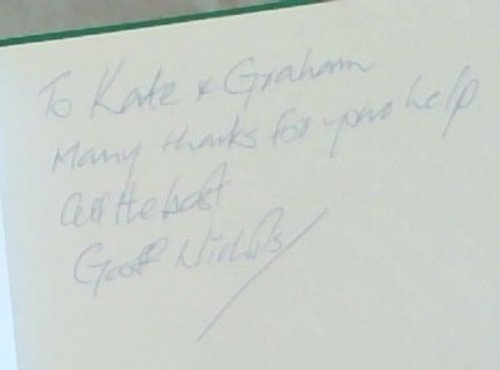 To Kate & Graham
Many thanks for your help.
All the best
Geoff Nichols